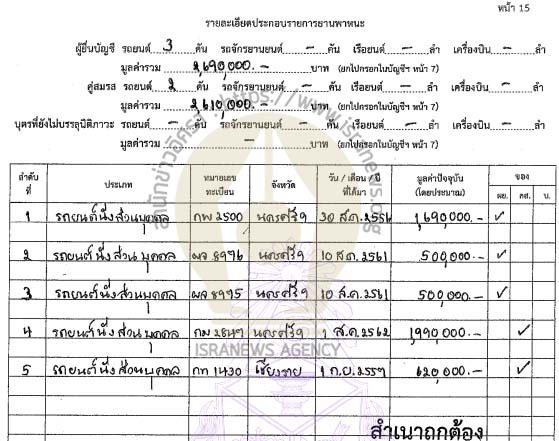 หน้า 15
รายละเอียดประกอบรายการยานพาหนะ
ผู้ยื่นบัญชี รถยนต์ 3 คัน รถจักรยานยนต์ - คัน เรือยนต์ - ลำ เครื่องบิน - ลำ
มูลค่ารวม 2,690,000.- บาท (ยกไปกรอกในบัญชีฯ หน้า 7)
คู่สมรส รถยนต์ 2 คัน รถจักรยานยนต์ - คัน เรือยนต์ - ลำ เครื่องบิน - ลำ
มูลค่ารวม 2,610,000.- บาท (ยกไปกรอกในบัญชีฯ หน้า 7)
บุตรที่ยังไม่บรรลุนิติภาวะ รถยนต์ - คัน รถจักรยานยนต์ - คัน เรือยนต์ - ลำ เครื่องบิน - ลำ
มูลค่ารวม - บาท (ยกไปกรอกในบัญชีฯ หน้า 7)
ลำดับที่ ประเภท หมายเลขทะเบียน จังหวัด วัน / เดือน / ปี ที่ได้มา มูลค่าปัจจุบัน (โดยประมาณ) ของ ผย. คส. บ.
1 รถยนต์นั่งส่วนบุคคล กพ 2500 นครศรีฯ 30 ส.ค. 2556 1,690,000.- ✓
2 รถยนต์นั่งส่วนบุคคล ผจ 8996 นครศรีฯ 10 ส.ค. 2561 500,000.- ✓
3 รถยนต์นั่งส่วนบุคคล ผจ 8995 นครศรีฯ 10 ส.ค. 2561 500,000.- ✓
4 รถยนต์นั่งส่วนบุคคล กม 2849 นครศรีฯ 1 ส.ค. 2562 1,990,000.- ✓
5 รถยนต์นั่งส่วนบุคคล กท 1430 เชียงราย 1 ก.ย. 2557 620,000.- ✓
สำเนาถูกต้อง
สำนักข่าวอิศรา https://www.isranews.org
ISRANEWS AGENCY